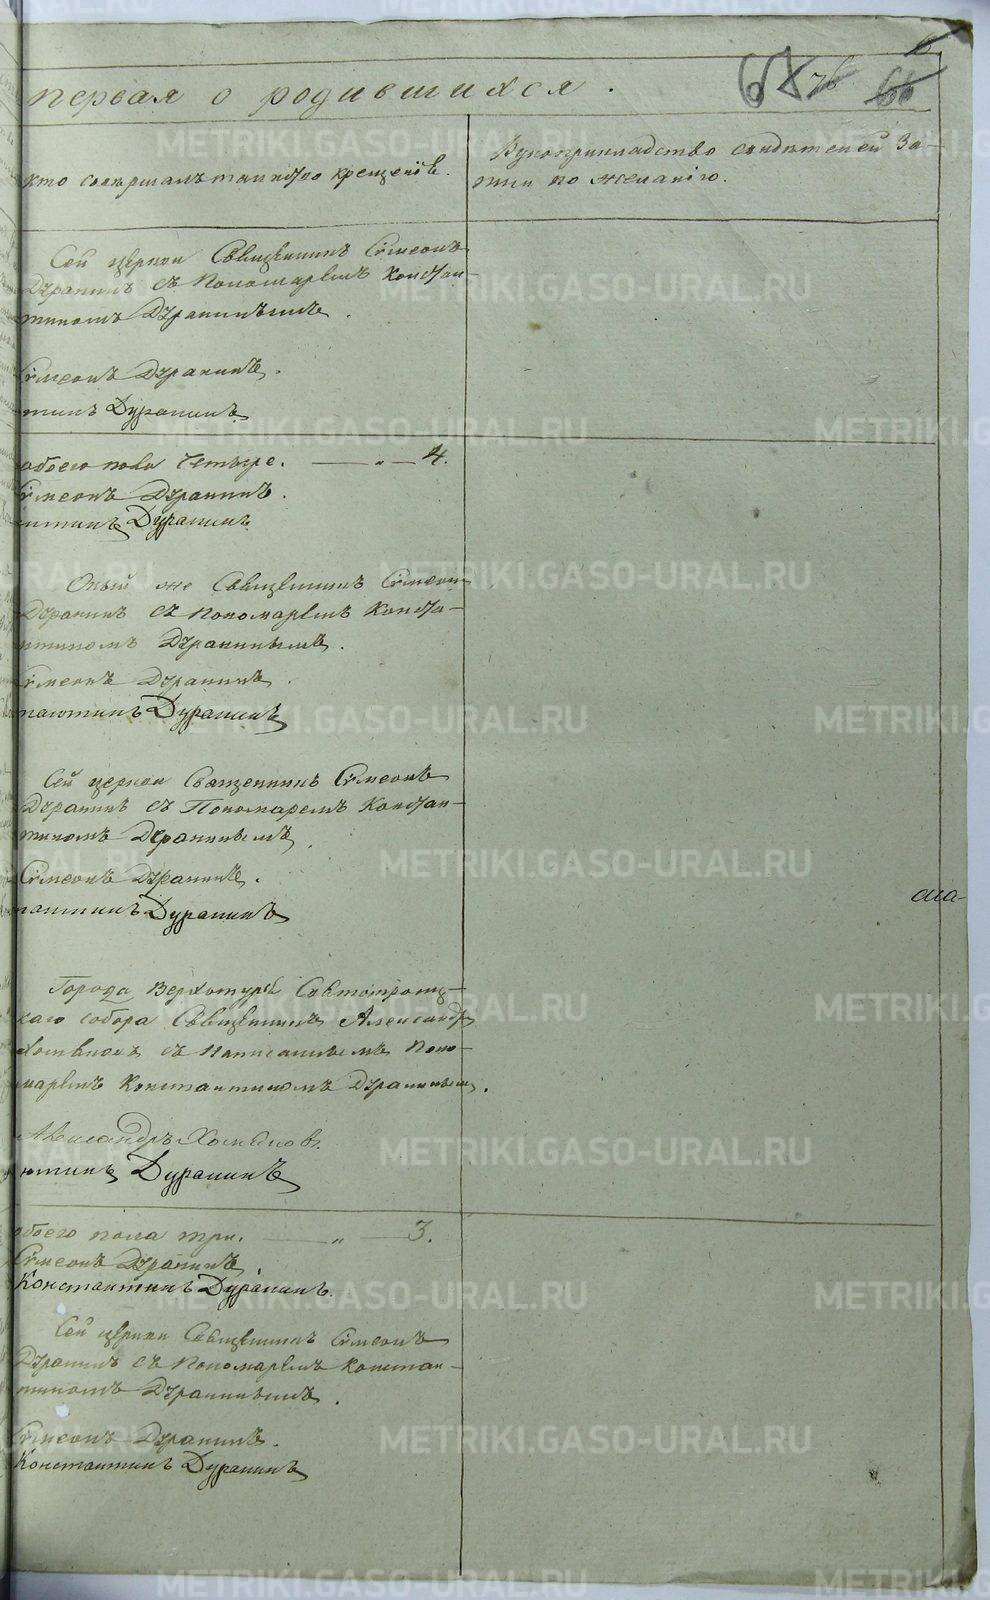 первая о родившихся.
68
66
Кто совершалъ таинство крещенія.
Рукоприкладство свидѣтелей за-
писи по желанію.
Сей церкви Священникъ Симеонъ
Дураминъ съ Пономаремъ Констан-
тиномъ Дураминымъ.
Симеонъ Дураминъ.
тинъ Дураминъ
обоего пола четыре. — „ — 4.
Симеонъ Дураминъ.
нтинъ Дураминъ
Оный же Священникъ Симеонъ
Дураминъ съ Пономаремъ Конста-
нтиномъ Дураминымъ.
Симеонъ Дураминъ.
нантинъ Дураминъ
Сей церкви Священникъ Симеонъ
Дураминъ съ Пономаремъ Констан-
тиномъ Дураминымъ.
Симеонъ Дураминъ.
тантинъ Дураминъ
сла-
Города Верхотурья Святотроиц-
каго собора Священникъ Александръ
Хомяковъ съ Пописаннымъ Поно-
маремъ Константиномъ Дураминымъ.
Александръ Хомяковъ.
нтинъ Дураминъ
обоего пола три. — „ — 3.
Симеонъ Дураминъ.
Константинъ Дураминъ.
Сей церкви Священникъ Симеонъ
Дураминъ съ Пономаремъ Констан-
тиномъ Дураминымъ.
Симеонъ Дураминъ.
Константинъ Дураминъ
METRIKI.GASO-URAL.RU